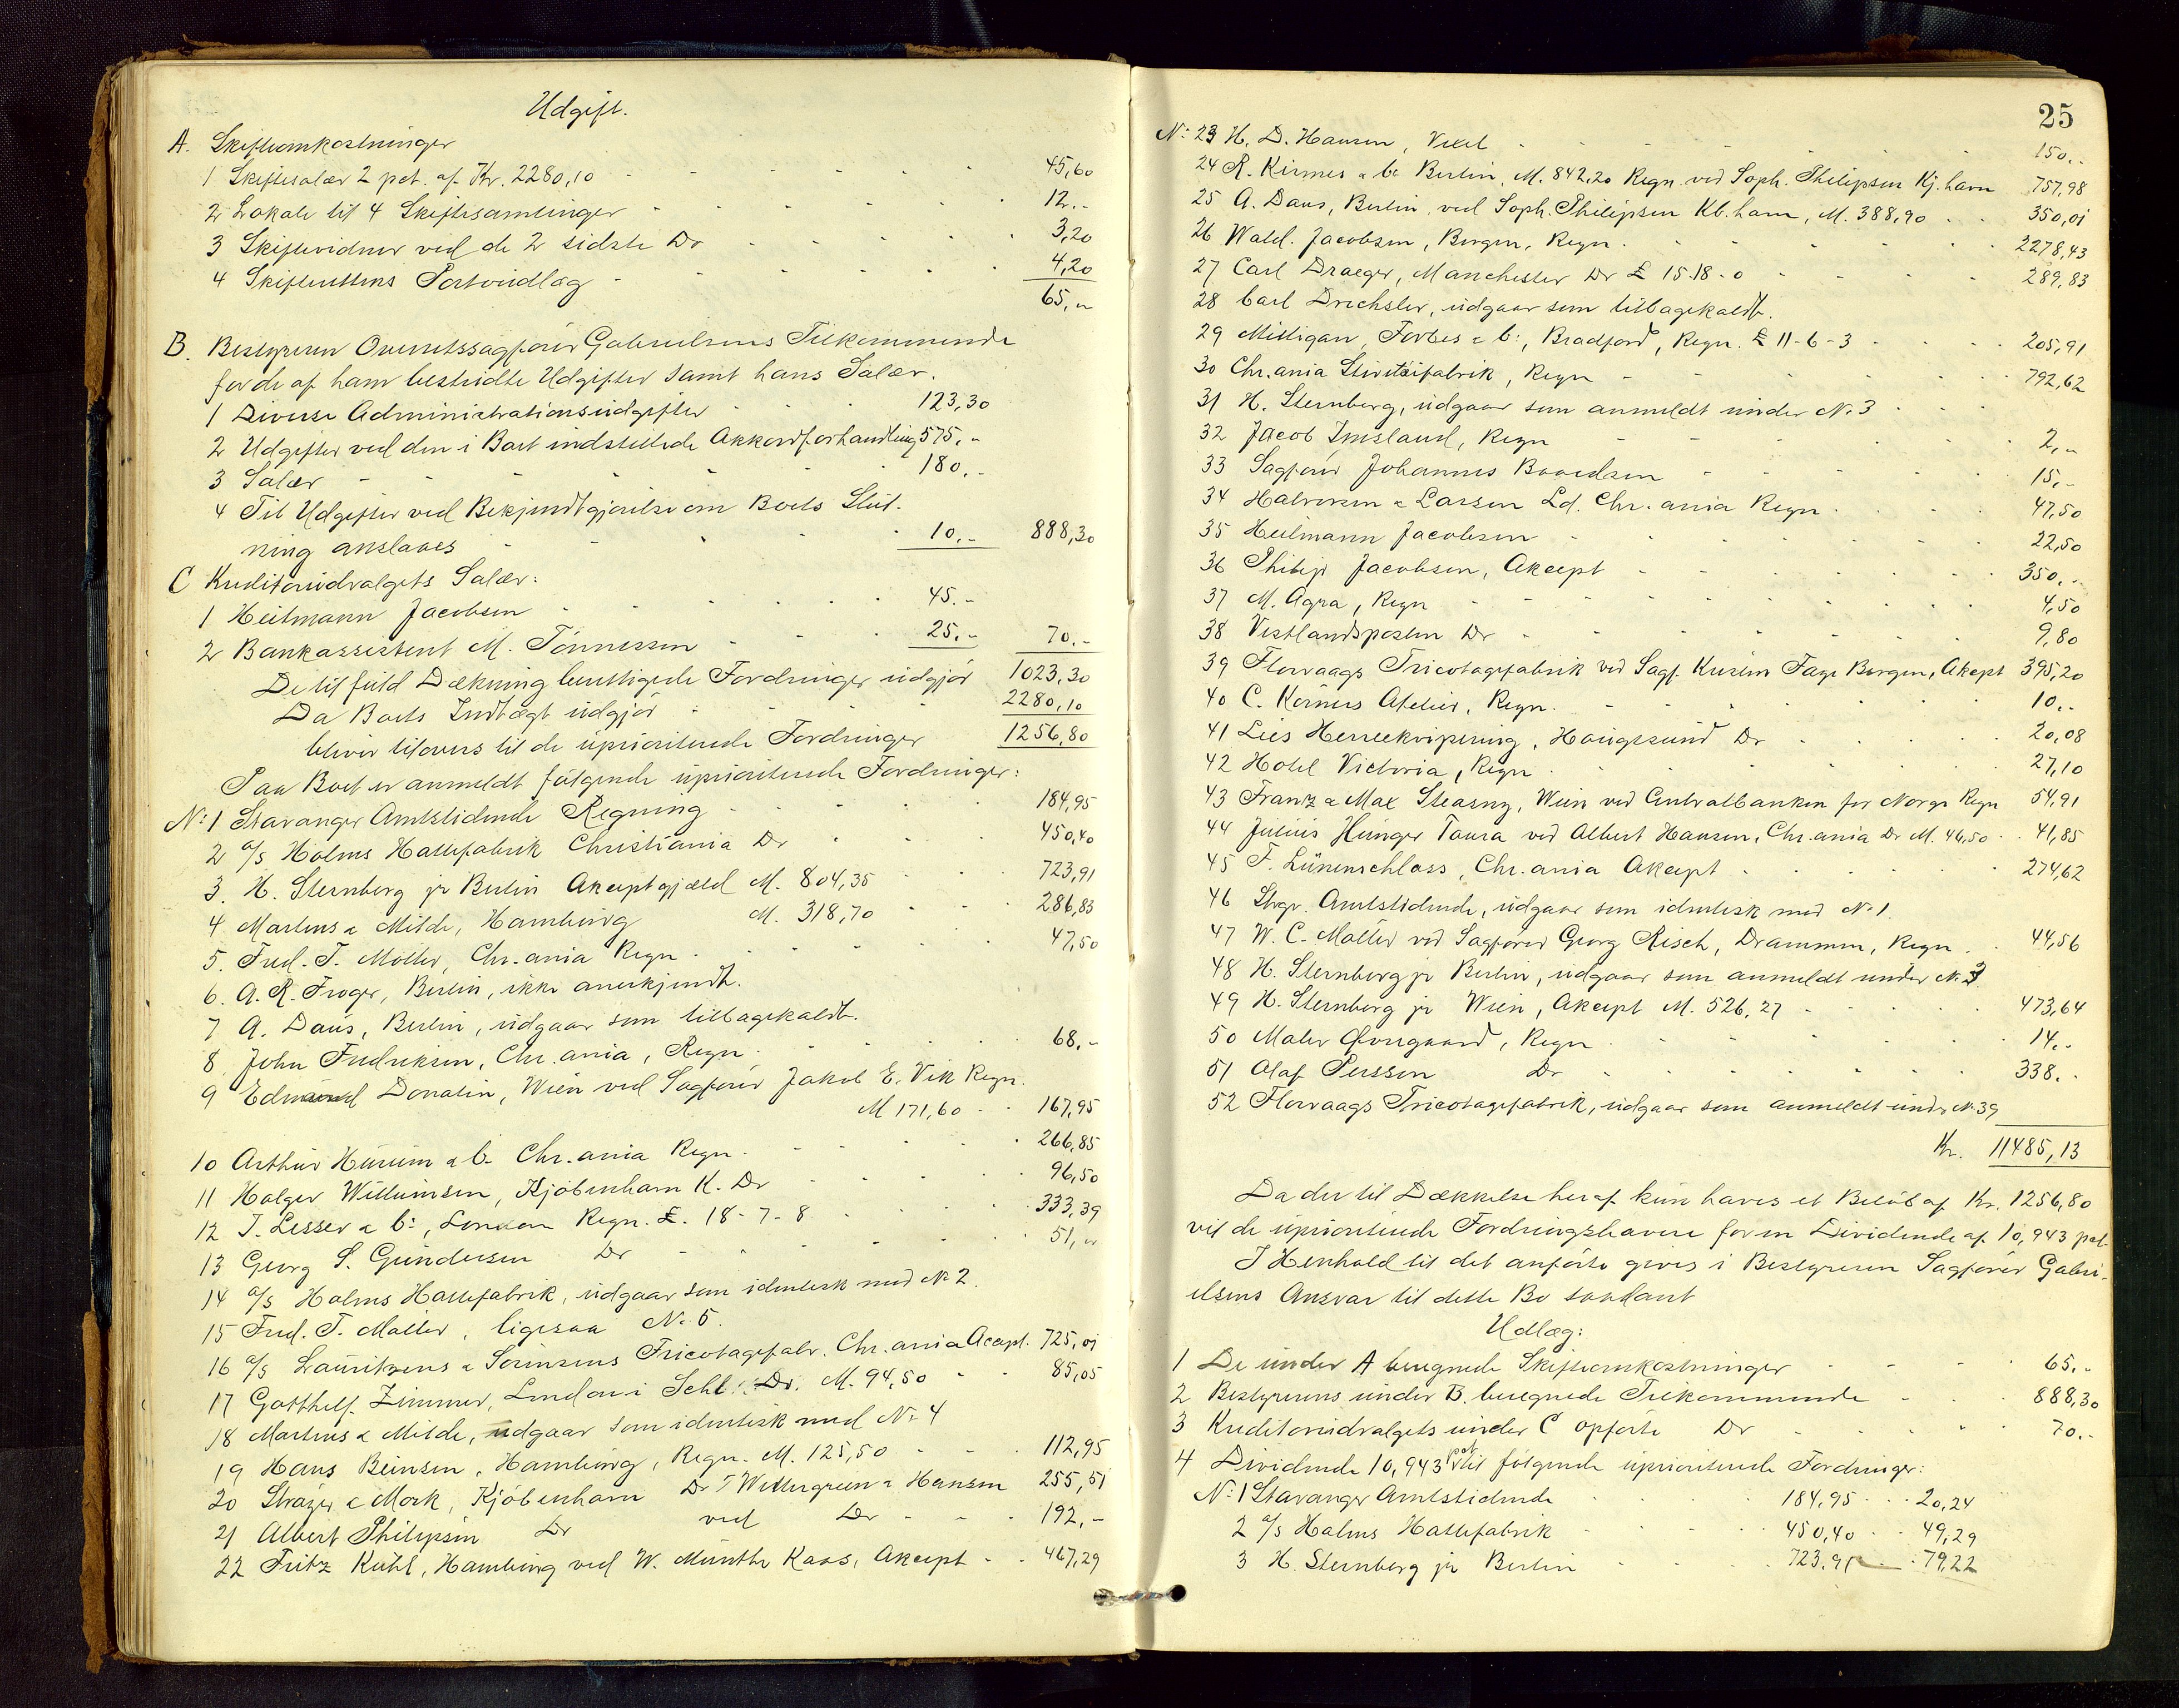 Udgift.
A. Skifteomkostninger
1 Skiftesalær 2 pct. af Kr. 2280,10 45,60
2 Lokale til 4 Skiftesamlinger 12.-
3 Skiftevidner ved de 2 sidste Do 3,20
4 Skifterettens Portoudlæg 4,20
65,-
B. Bestyreren Overretssagfører Gabrielsens Tilkommende
for de af ham bestridte Udgifter samt hans Salær.
1 Diverse Administrationsudgifter 123,30
2 Udgifter ved den i Boet indstillede Akkordforhandling 575.-
3 Salær 180.-
4 Til Udgifter ved Bekjendtgjørelse om Boets Slut-
ning anslaaes 10.- 888,30
C Kreditorudvalgets Salær:
1 Heitmann Jacobsen 45.-
2 Bankassistent M. Tönnessen 25.- 70.-
De til fuld Dækning berettigede Fordringer udgjør 1023,30
Da Boets Indtægt udgjør 2280,10
bliver tilovers til de uprioriterede Fordringer 1256,80
Paa Boet er anmeldt følgende uprioriterede Fordringer:
No 1 Stavanger Amtstidende Regning 184,95
2 a/s Holms Hattefabrik Christiania Do 450,40
3. H. Sternberg jr Berlin Akceptgjæld M. 804,35 723,91
4. Martens & Milde, Hamburg M. 318,70 286,83
5. Fred. T. Möller, Chr.ania Regn. 47,50
6. A. R. Froger, Berlin, ikke anerkjendt.
7 A. Daus, Berlin, udgaar som tilbagekaldt.
8. John Fredriksen, Chr.ania, Regn. 68.-
9 Edmund Donatin, Wien ved Sagfører Jakob E. Vik Regn.
M 171,60 167,95
10 Arthur Husum & C. Chr.ania Regn. 266,85
11 Holger Willumsen, Kjøbenhavn K. Do 96,50
12 J. Lesser & Co:, London Regn. £. 18-7-8 333,39
13 Georg S. Gundersen Do 51,-
14 a/s Holms Hattefabrik, udgaar som identisk med No 2.
15 Fred. T. Møller, ligesaa No 5.
16 a/s Lauritzens & Sörensens Tricotagefabr. Chr.ania Accept. 725,01
17 Gotthelf Zimmer, i Schl. Do. M. 94,50 85,05
18 Martens & Milde, udgaar som identisk med No 4
19 Hans Beinsen, Hamburg, Regn. M. 125,50 112,95
20 & Mork, Kjøbenhavn Do Wettergreen & Hansen 255,51
21 Albert Philipsen Do ved Do 192,-
22 Fritz Kuhl, Hamburg ved W. Munthe Kaas, Akcept 467,29
25
No: 23 H. D. Hansen, Vexel 150.-
24 R. Kirmes & Co Berlin, M. 842,20 Regn. ved Soph. Philipsen Kj.havn 757,98
25 A. Daus, Berlin, ved Soph. Philipsen Kb.havn, M. 388,90 350,01
26 Wald. Jacobsen, Bergen, Regn. 2278,43
27 Carl Draeger, Manchester Do £ 15-18-0 289,83
28 Carl Drechsler, udgaar som tilbagekaldt.
29 Milligan, Forbes & C:, Bradford, Regn. £ 11-6-3 205,91
30 Chr.ania Skirtöifabrik, Regn 792,62
31 H. Sternberg, udgaar som anmeldt under No 3
32 Jacob Imsland, Regn 2,-
33 Sagfører Johannes Boardsen 15,-
34 Halvorsen & Larsen Ld. Chr.ania Regn. 47,50
35 Heitmann Jacobsen 22,50
36 Philip Jacobsen, Akcept 350.-
37 M. Agra, Regn 4,50
38 Vestlandsposten Do 9,80
39 Florvaags Tricotagefabrik ved Sagf. Kristen Faye Bergen, Akcept 395,20
40 C. Körners Atelier, Regn. 10.-
41 Lies Herreekvipering, Haugesund Do 20,08
42 Hotel Victoria, Regn 27,10
43 Franz & Max Steasny, Wien ved Centralbanken for Norge Regn 54,91
44 Julius Hunger Taura ved Albert Hansen, Chr.ania Do M. 46,50 41,85
45 F. Lünenschloss, Chr.ania Akcept 274,62
46 Stvgr. Amtstidende, udgaar som identisk med No 1.
47 W. C. Møller ved Sagfører Georg Risch, Drammen, Regn. 44,56
48 H. Sternberg jr Berlin, udgaar som anmeldt under No 3
49 H. Sternberg jr Wien, Akcept M. 526,27 473,64
50 Maler Overgaard, Regn 14.-
51 Olaf Persson Do 338.-
52 Florvaags Tricotagefabrik, udgaar som anmeldt under No 39
Kr. 11485,13
Da der til Dækkelse heraf kun haves et Beløb af Kr. 1256,80
vil de uprioriterede Fordringshavere faa en Dividende af 10,943 pct.
I Henhold til det anførte gives i Bestyreren Sagfører Gabri-
elsens Ansvar til dette Bo saadant
Udlæg:
1 De under A beregnede Skifteomkostninger 65.-
2 Bestyrerens under B. beregnede Tilkommende 888,30
3 Kreditorudvalgets under C opførte Do 70.-
4 Dividende 10,943 pct til følgende uprioriterede Fordringer:
No 1 Stavanger Amtstidende 184,95 20,24
2 a/s Holms Hattefabrik 450,40 49,29
3 H. Sternberg jr Berlin 723.91 79,22